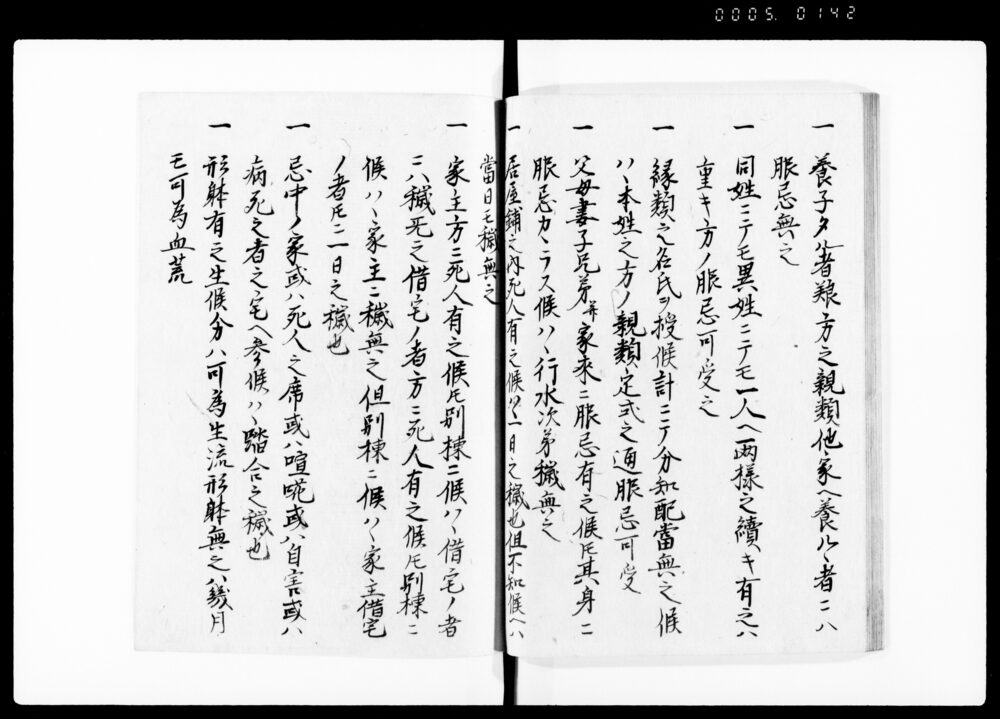 0005. 0142
一 養子タル者養方之親類他家ヘ養ハルヽ者ニハ
服忌無之
一 同姓ニテモ異姓ニテモ一人ヘ両様之續キ有之ハ
重キ方ノ服忌可受之
一 縁類之名氏ヲ授候計ニテ分知配當無之候
ハヽ本姓之方ノ親類定式之通服忌可受
一 父母妻子兄弟并家来ニ服忌有之候氏其身ニ
服忌カヽラス候ハヽ行水次第穢無之
一 居屋鋪之内死人有之候ハヽ一日之穢也但不知候ヘハ
當日モ穢無之
一 家主方ニ死人有之候氏別棟ニ候ハヽ借宅ノ者
ニハ穢死之借宅ノ者方ニ死人有之候氏別棟ニ
候ハヽ家主ニ穢無之但別棟ニ候ハヽ家主借宅
ノ者氏ニ一日之穢也
一 忌中ノ家或ハ死人之席或ハ喧𠵅或ハ自害或ハ
病死之者之宅ヘ参候ハヽ踏合之穢也
一 形躰有之生候分ハ可為生流形躰無之ハ幾月
モ可為血荒